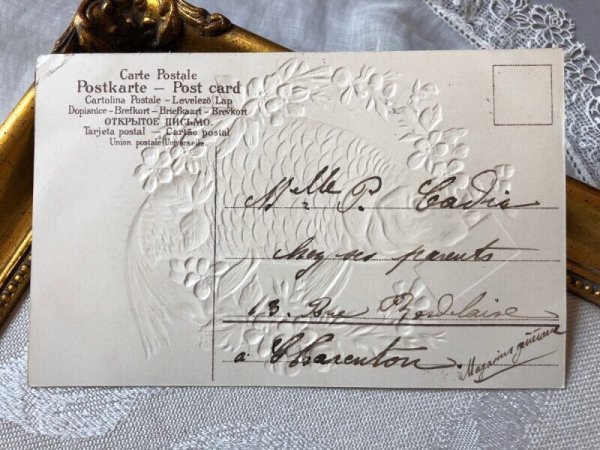 Carte Postale
Postkarte — Post card
Cartolina Postale – Levelező Lap
Dopisnice – Brefkort – Briefkaart – Brevkort
ОТКРЫТОЕ ПИСЬМО.
Tarjeta postal — Cartão postal
Union postale Universelle.
Mlle P. Cadia
chez ses parents
13. Rue
à Charenton.